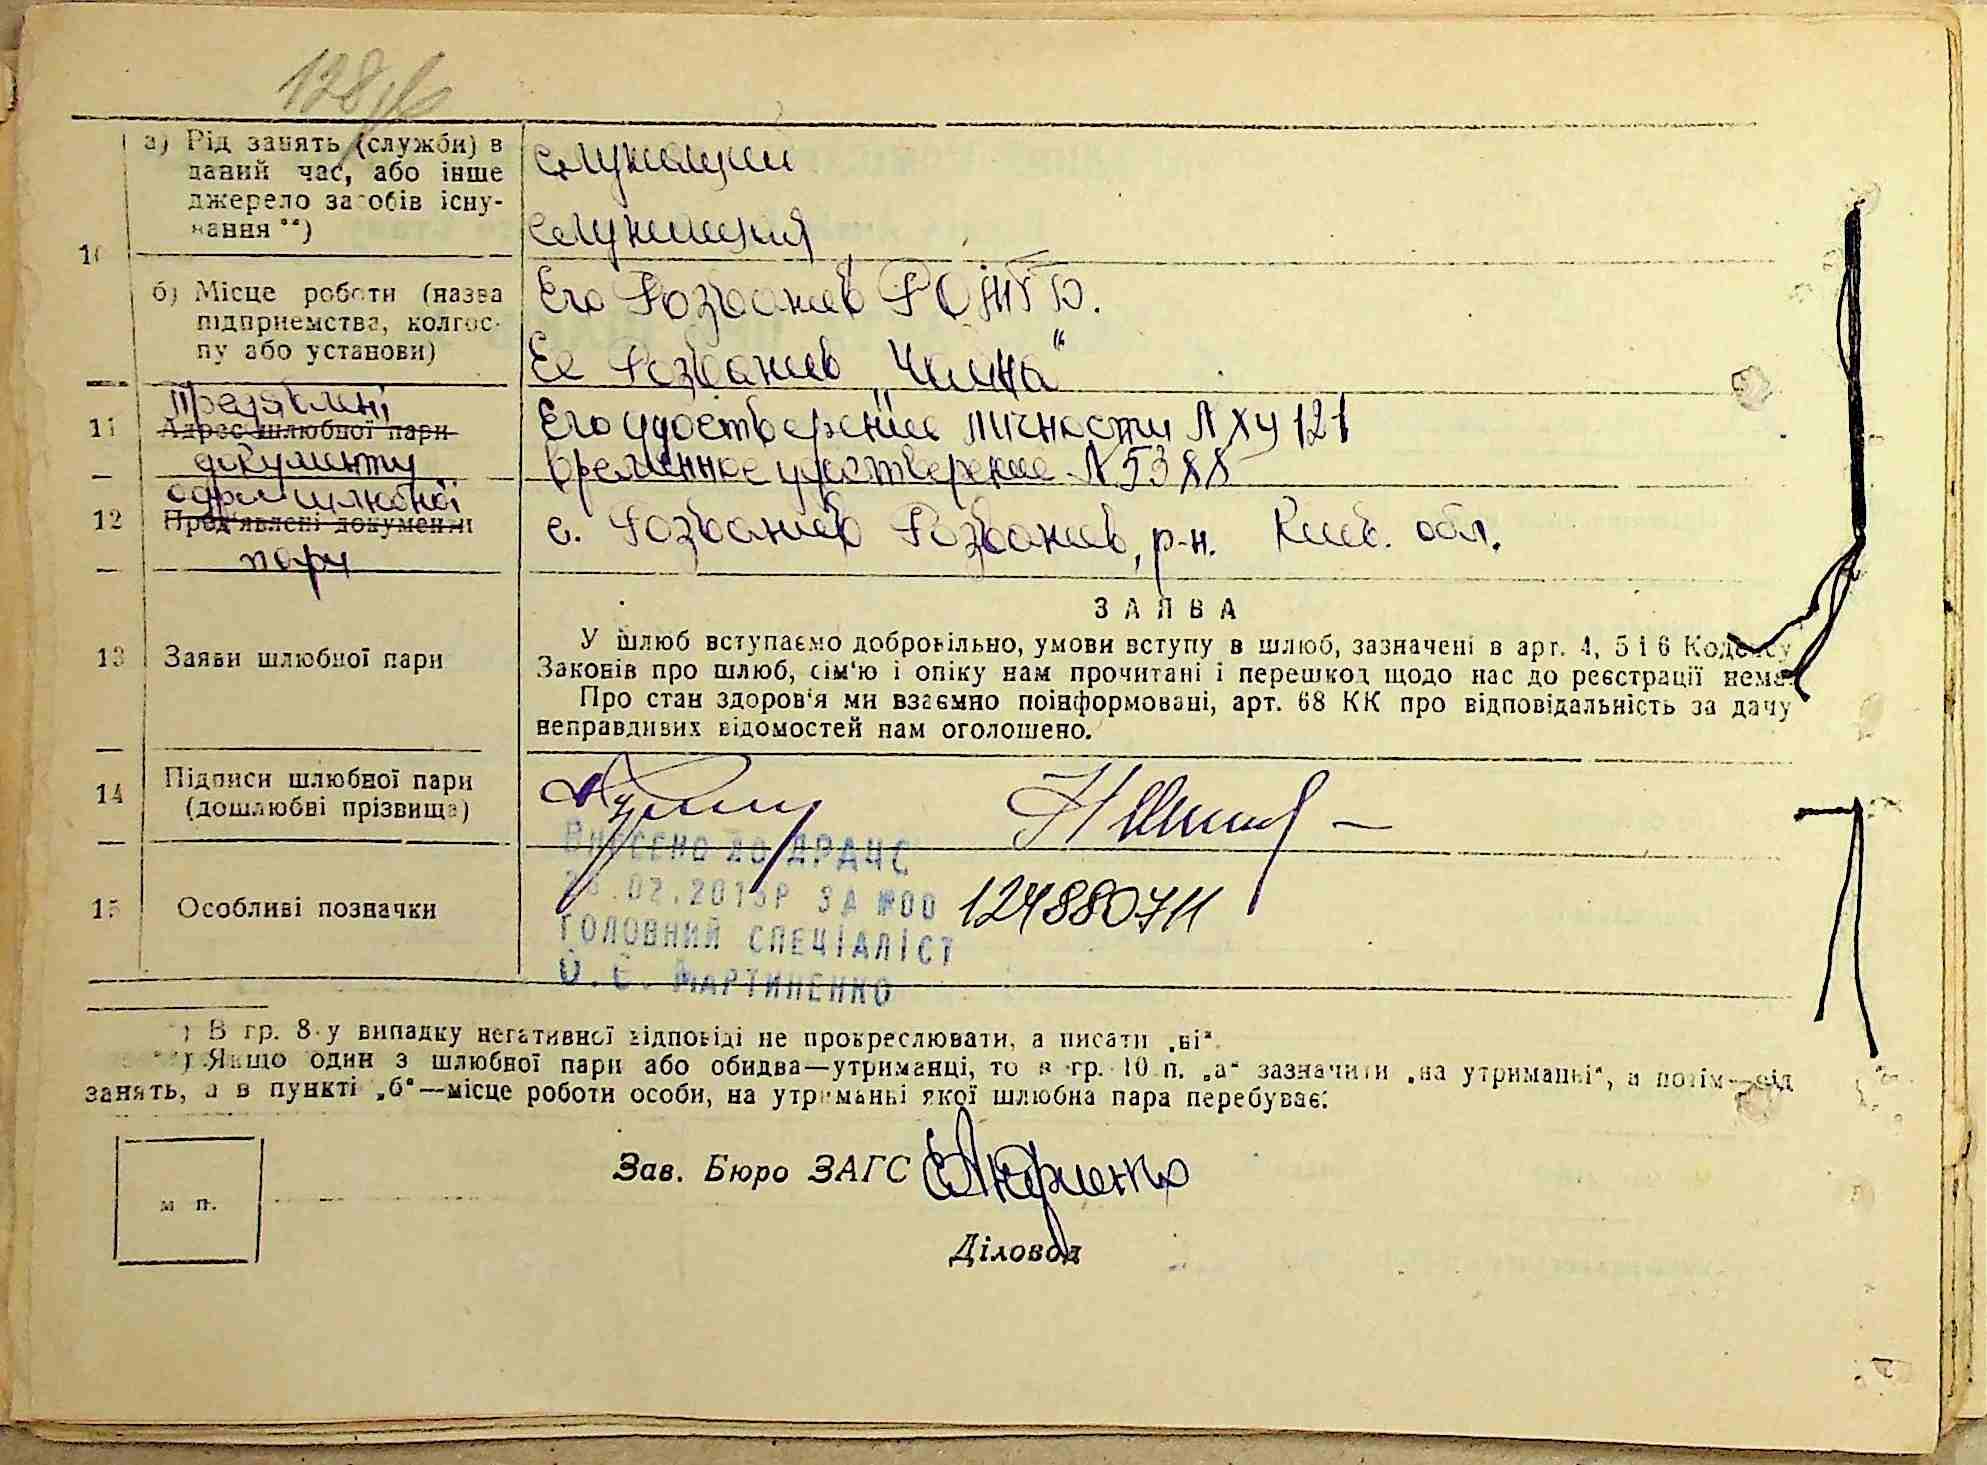 а) Рід занять (служби) в
даний час, або інше
джерело засобів існу-
вання **)
служащий
служащия
10
б) Місце роботи (назва
підприємства, колгос-
пу або установи)
Его Розважев
Ее Розважев
11
Пред'явлені
Адрес шлюбної пари
документи
Его удостверение личности № ХУ 121
временное удостверение № 5388
12
адрес шлюбної
Пред'явлені документи
пари
с. Розважев Розважев, р-н. Киев. обл.
13 Заяви шлюбної пари
ЗАЯВА
У шлюб вступаємо добровільно, умови вступу в шлюб, зазначені в арт. 4, 5 і 6 Кодексу
Законів про шлюб, сім'ю і опіку нам прочитані і перешкод щодо нас до реєстрації нема.
Про стан здоров'я ми взаємно поінформовані, арт. 68 КК про відповідальність за дачу
неправдивих відомостей нам оголошено.
14 Підписи шлюбної пари
(дошлюбні прізвища)
15 Особливі позначки
ВНЕСЕНО ДО ДРАЦС
.02.2013Р ЗА №00 124880711
ГОЛОВНИЙ СПЕЦІАЛІСТ
О.Є. МАРТИНЕНКО
*) В гр. 8 у випадку негативної відповіді не прокреслювати, а писати „ні".
**) Якщо один з шлюбної пари або обидва—утриманці, то в гр. 10 п. „а" зазначити „на утриманні", а потім—рід
занять, а в пункті „б"—місце роботи особи, на утриманні якої шлюбна пара перебуває.
м п.
Зав. Бюро ЗАГС
Діловод